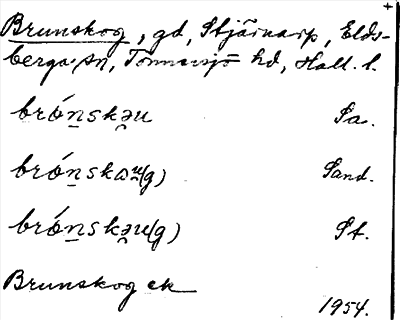 +
Brunskog, gd, Stjärnarp, Elds-
berga sn, Tönnersjö hd, Hall. l.
brónskəu Sa.
brónskωu(g) Sand.
brónskəu(g) St.
Brunskog ek
1954.